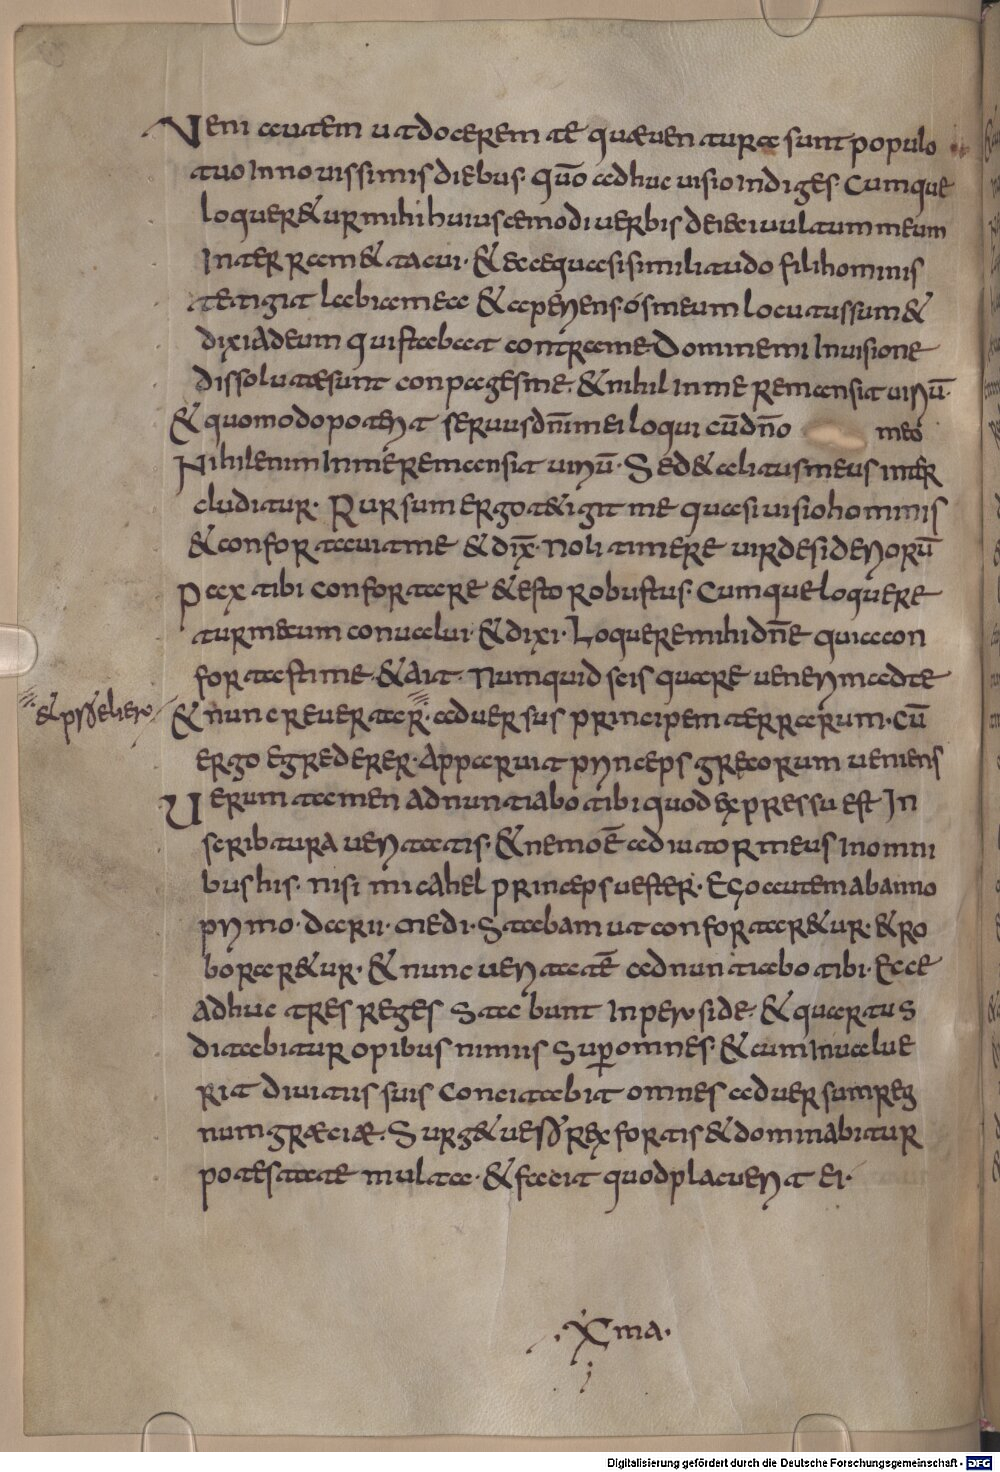 Veni autem ut docerem te quæ venturæ sunt populo
tuo In novissimis diebus. qūo adhuc visio In diges. Cumque
loquer&ur mihi huiuscemodi verbis deieci vultum meum
In terram & tacui. & ecce quasi similitudo filihominis
tetigit labia mea & aperiens ós meum locutus sum &
dixi Ad eum qui stabat contra me Domine mi In visione
dissolutæ sunt conpages me. & nihil In me remansit viriū.
& quomodo poterit servus dn̄i mei loqui cū dn̄o meo
Nihil enim In me remansit viriū. Sed & alitus meus inter
cluditur. Rursum ergo t&igit me quasi visio hominis
& confortavit me & dix̄. Noli timere vir desideriorū
Pax tibi confortare & esto robustus. Cumque loquere
tur mecum convalui. & dixi. Loquere mihi dn̄e quia con
fortasti me. & Ait. Numquid scis quare venerim ad te
& nunc revertar. adversus principem terrarum. Cū
& pr̄ȩlier
ergo egrederer. Apparuit princeps grecorum veniens
Verum tamen Adnuntiabo tibi quod expressū est In
scribtura veritatis. & nemo ē adiutor meus In omni
bus his. nisi micahel princeps vester. Ego autem ab anno
primo. darii. medi. Stabam ut confortar&ur. & ro
borar&ur. & nunc veritatē adnuntiabo tibi. Ecce
Adhuc tres reges Stabunt In perside. & quartus
ditabitur opibus nimiis Sup̄ omnes. & cum Invalue
rit divitiis suis Concitabit omnes adversum reg
num græciæ. Surg& ves̄r rex fortis & dominabitur
potestate multa. & faciet quod placuerit ei.
.X ma.
Digitalisierung gefördert durch die Deutsche Forschungsgemeinschaft - DFG